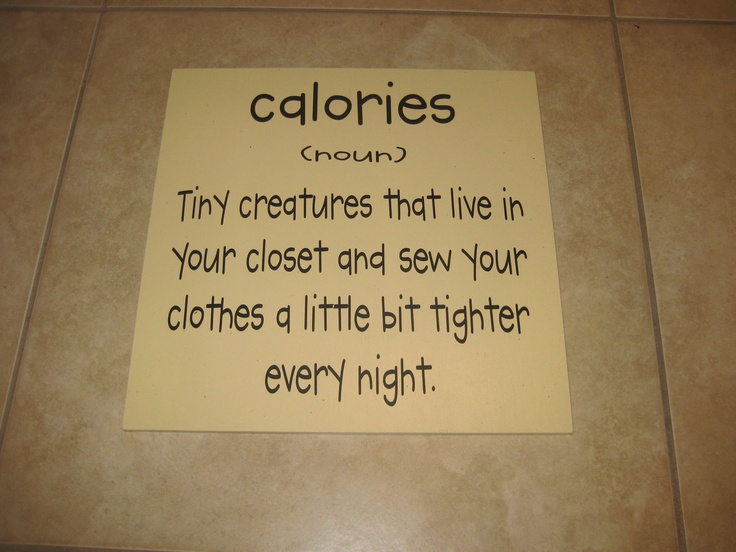 calories
(noun)
Tiny creatures that live in
your closet and sew your
clothes a little bit tighter
every night.